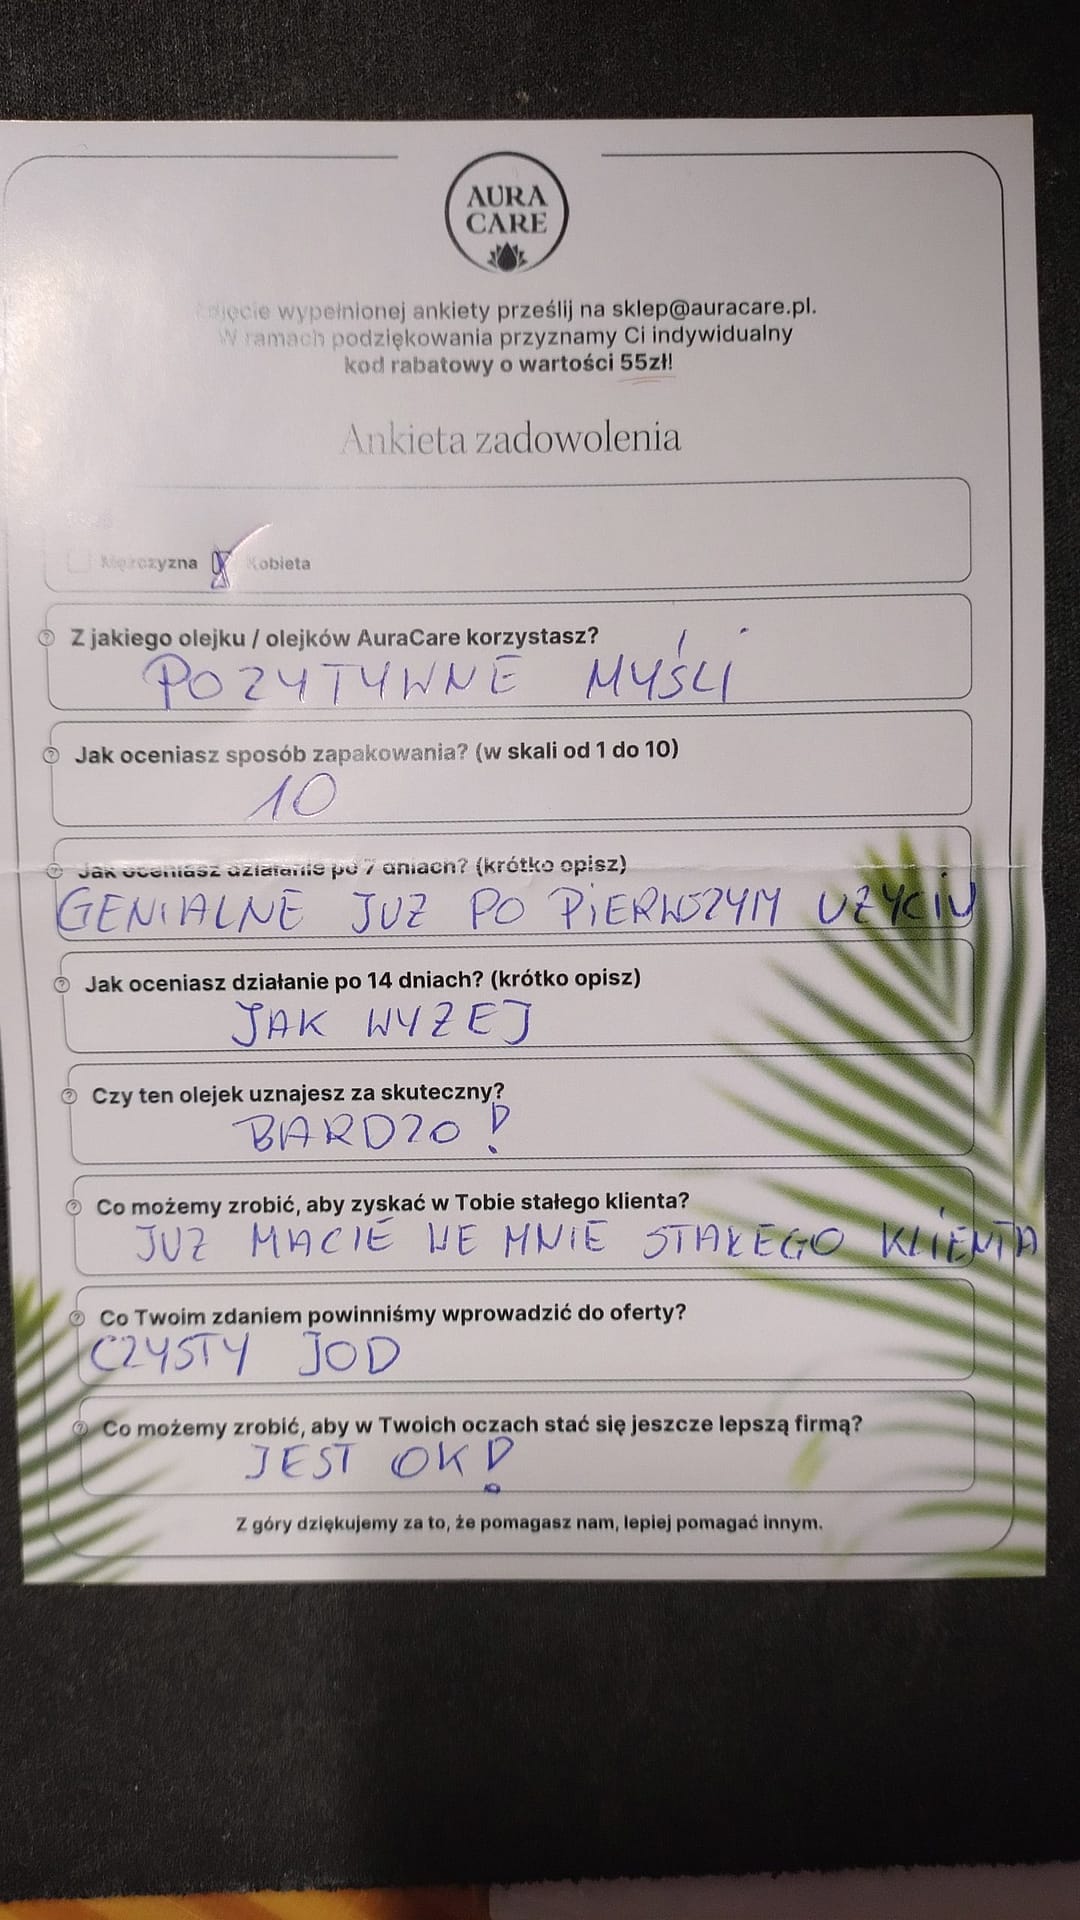 AURA
CARE
Zdjęcie wypełnionej ankiety prześlij na sklep@auracare.pl.
W ramach podziękowania przyznamy Ci indywidualny
kod rabatowy o wartości 55zł!
Ankieta zadowolenia
Mężczyzna Kobieta
Z jakiego olejku / olejków AuraCare korzystasz?
POZYTYWNE MYŚLI
Jak oceniasz sposób zapakowania? (w skali od 1 do 10)
10
Jak oceniasz działanie po 7 dniach? (krótko opisz)
GENIALNE JUZ PO PIERWSZYM UŻYCIU
Jak oceniasz działanie po 14 dniach? (krótko opisz)
JAK WYZEJ
Czy ten olejek uznajesz za skuteczny?
BARDZO!
Co możemy zrobić, aby zyskać w Tobie stałego klienta?
JUZ MACIE WE MNIE STAŁEGO KLIENTA
Co Twoim zdaniem powinniśmy wprowadzić do oferty?
CZYSTY JOD
Co możemy zrobić, aby w Twoich oczach stać się jeszcze lepszą firmą?
JEST OK!
Z góry dziękujemy za to, że pomagasz nam, lepiej pomagać innym.